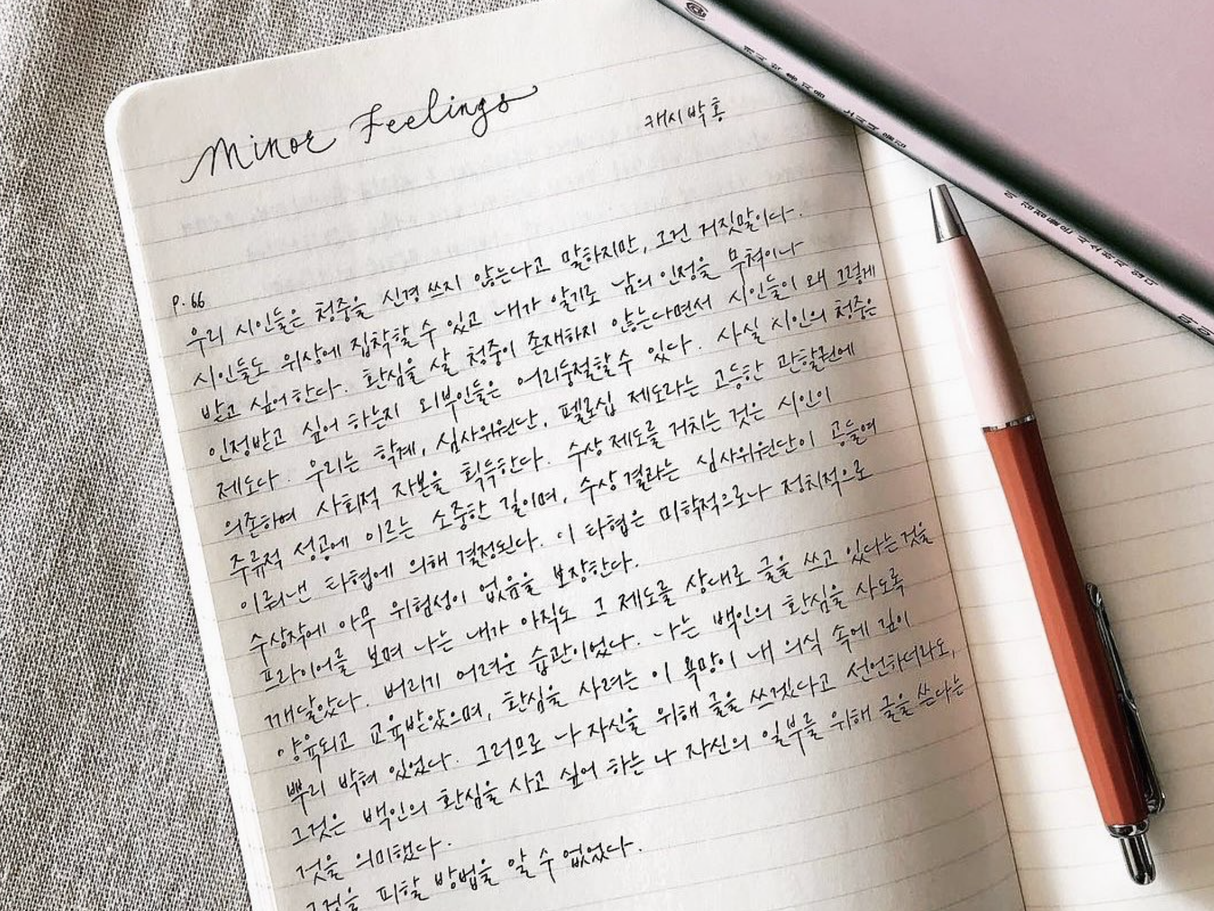 Minor Feelings
캐시 박 홍
p. 66
우리 시인들은 청중을 신경 쓰지 않는다고 말하지만, 그건 거짓말이다.
시인들도 위상에 집착할 수 있고 내가 알기로 남의 인정을 무척이나
받고 싶어한다. 환심을 살 청중이 존재하지 않는다면서 시인들이 왜 그렇게
인정받고 싶어 하는지 외부인들은 어리둥절할 수 있다. 사실 시인의 청중은
제도다. 우리는 학계, 심사위원단, 펠로십 제도라는 고등한 관할권에
의존하여 사회적 자본을 획득한다. 수상 제도를 거치는 것은 시인이
주류적 성공에 이르는 소중한 길이며, 수상 결과는 심사위원단이 공들여
이뤄낸 타협에 의해 결정된다. 이 타협은 미학적으로나 정치적으로
수상작에 아무 위험성이 없음을 보장한다.
프라이어를 보며 나는 내가 아직도 그 제도를 상대로 글을 쓰고 있다는 것을
깨달았다. 버리기 어려운 습관이었다. 나는 백인의 환심을 사도록
양육되고 교육받았으며, 환심을 사려는 이 욕망이 내 의식 속에 깊이
뿌리 박혀 있었다. 그러므로 나 자신을 위해 글을 쓰겠다고 선언하더라도,
그것은 백인의 환심을 사고 싶어 하는 나 자신의 일부를 위해 글을 쓴다는
것을 의미했다.
그것을 피할 방법을 알 수 없었다.